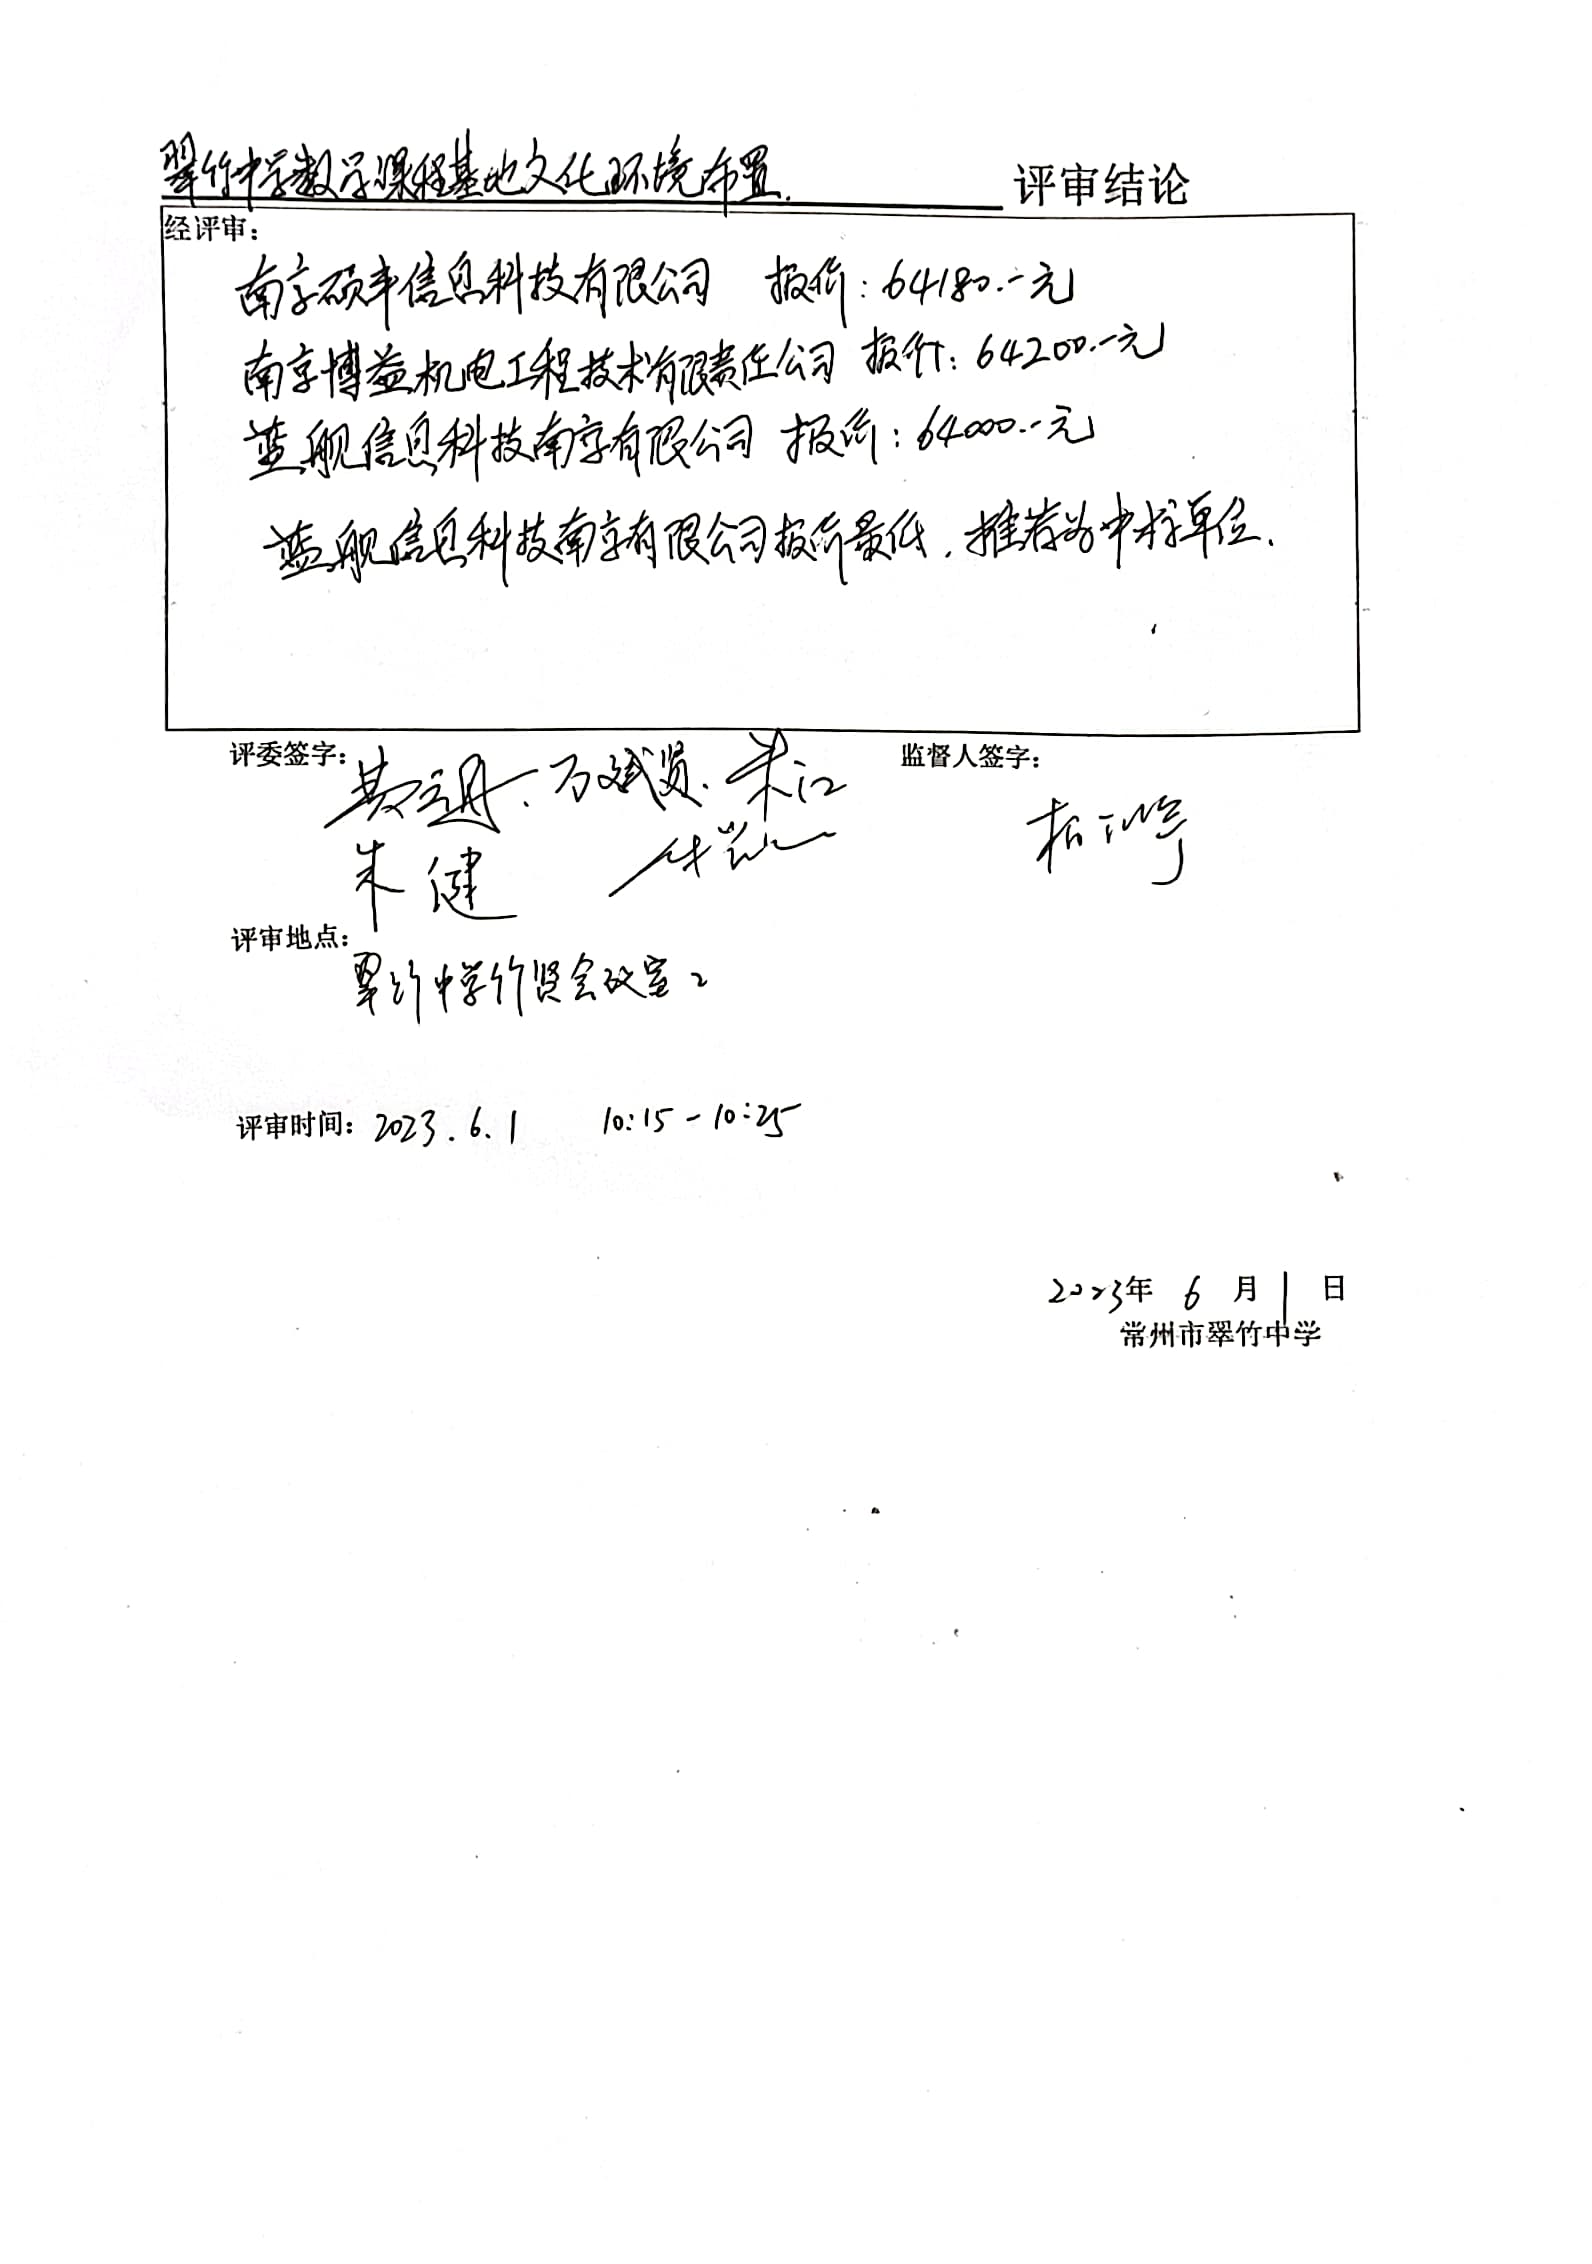 翠竹中学数学课程基地文化环境布置. 评审结论
经评审：
南京硕丰信息科技有限公司 报价：64180.-元
南京博益机电工程技术有限责任公司 报价：64200.-元
蓝舰信息科技南京有限公司 报价：64000.-元
蓝舰信息科技南京有限公司报价最低，推荐为中标单位.
评委签字： 万斌贤. 朱江 监督人签字：
朱健
评审地点：
翠竹中学竹贤会议室2
评审时间：2023.6.1 10:15-10:25
2023年 6 月 1 日
常州市翠竹中学